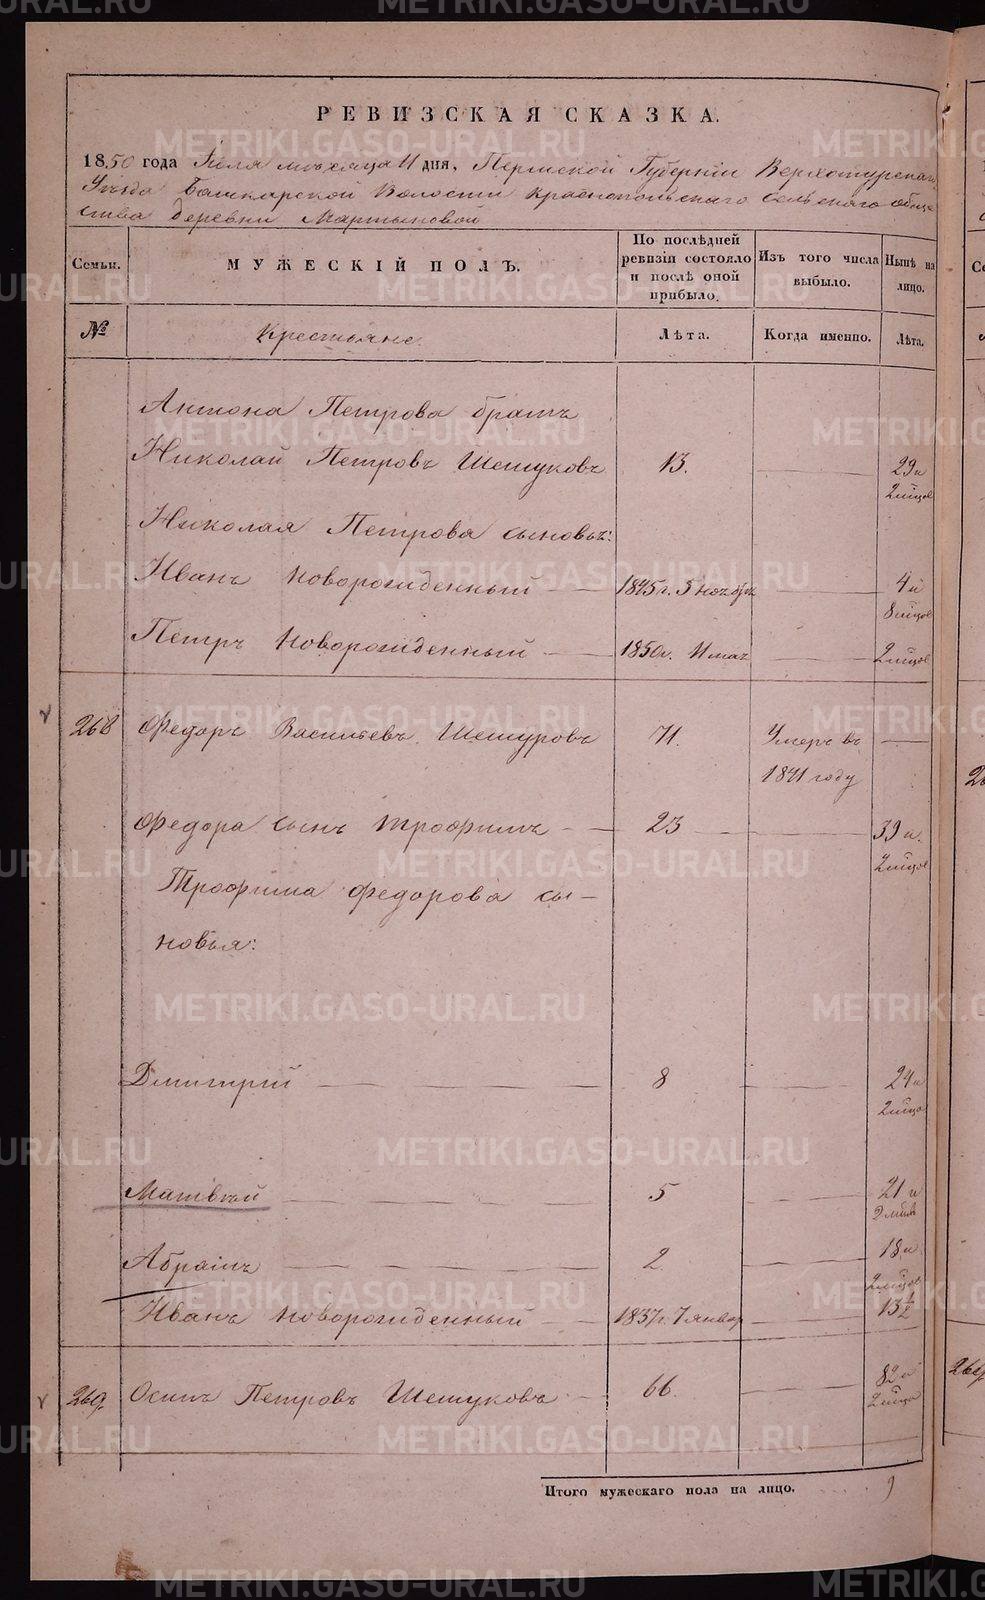 РЕВИЗСКАЯ СКАЗКА.
1850 года Іюля мѣсяца 11 дня, Пермской Губерніи Верхотурскаго
Уѣзда Башкарской Волости Краснопольскаго Сельскаго обще
ства деревни Мартыновой
Семьи.
МУЖЕСКІЙ ПОЛЪ.
По послѣдней ревизіи состояло и послѣ оной прибыло.
Изъ того числа выбыло.
Нынѣ на лицо.
№
Крестьяне.
Лѣта.
Когда именно.
Лѣта.
Антона Петрова братъ
Николай Петровъ Шешуковъ 13. 29 и
2 мѣцов
Николая Петрова сыновья:
Иванъ новорожденный 1845 г. 5 ноября 4 и
8 мѣцов
Петръ новорожденный 1850 г. 11 мая 2 мѣцов
268 Федоръ Васильевъ Шешуковъ 71. Умеръ въ
1841 году
Федора сынъ Трофимъ 23 39 и
2 мѣцов
Трофима Федорова сы-
новья:
Дмитрій 8 24 и
2 мѣцо
Матвѣй 5 21 и
2 мѣц
Абрамъ 2. 18 и
2 мѣцов
Иванъ новорожденный 1837 г. 7 январ 13 ½
269. Осипъ Петровъ Шешуковъ 66. 82 и
2 мѣцо
Итого мужескаго пола на лицо. 9
METRIKI.GASO-URAL.RU